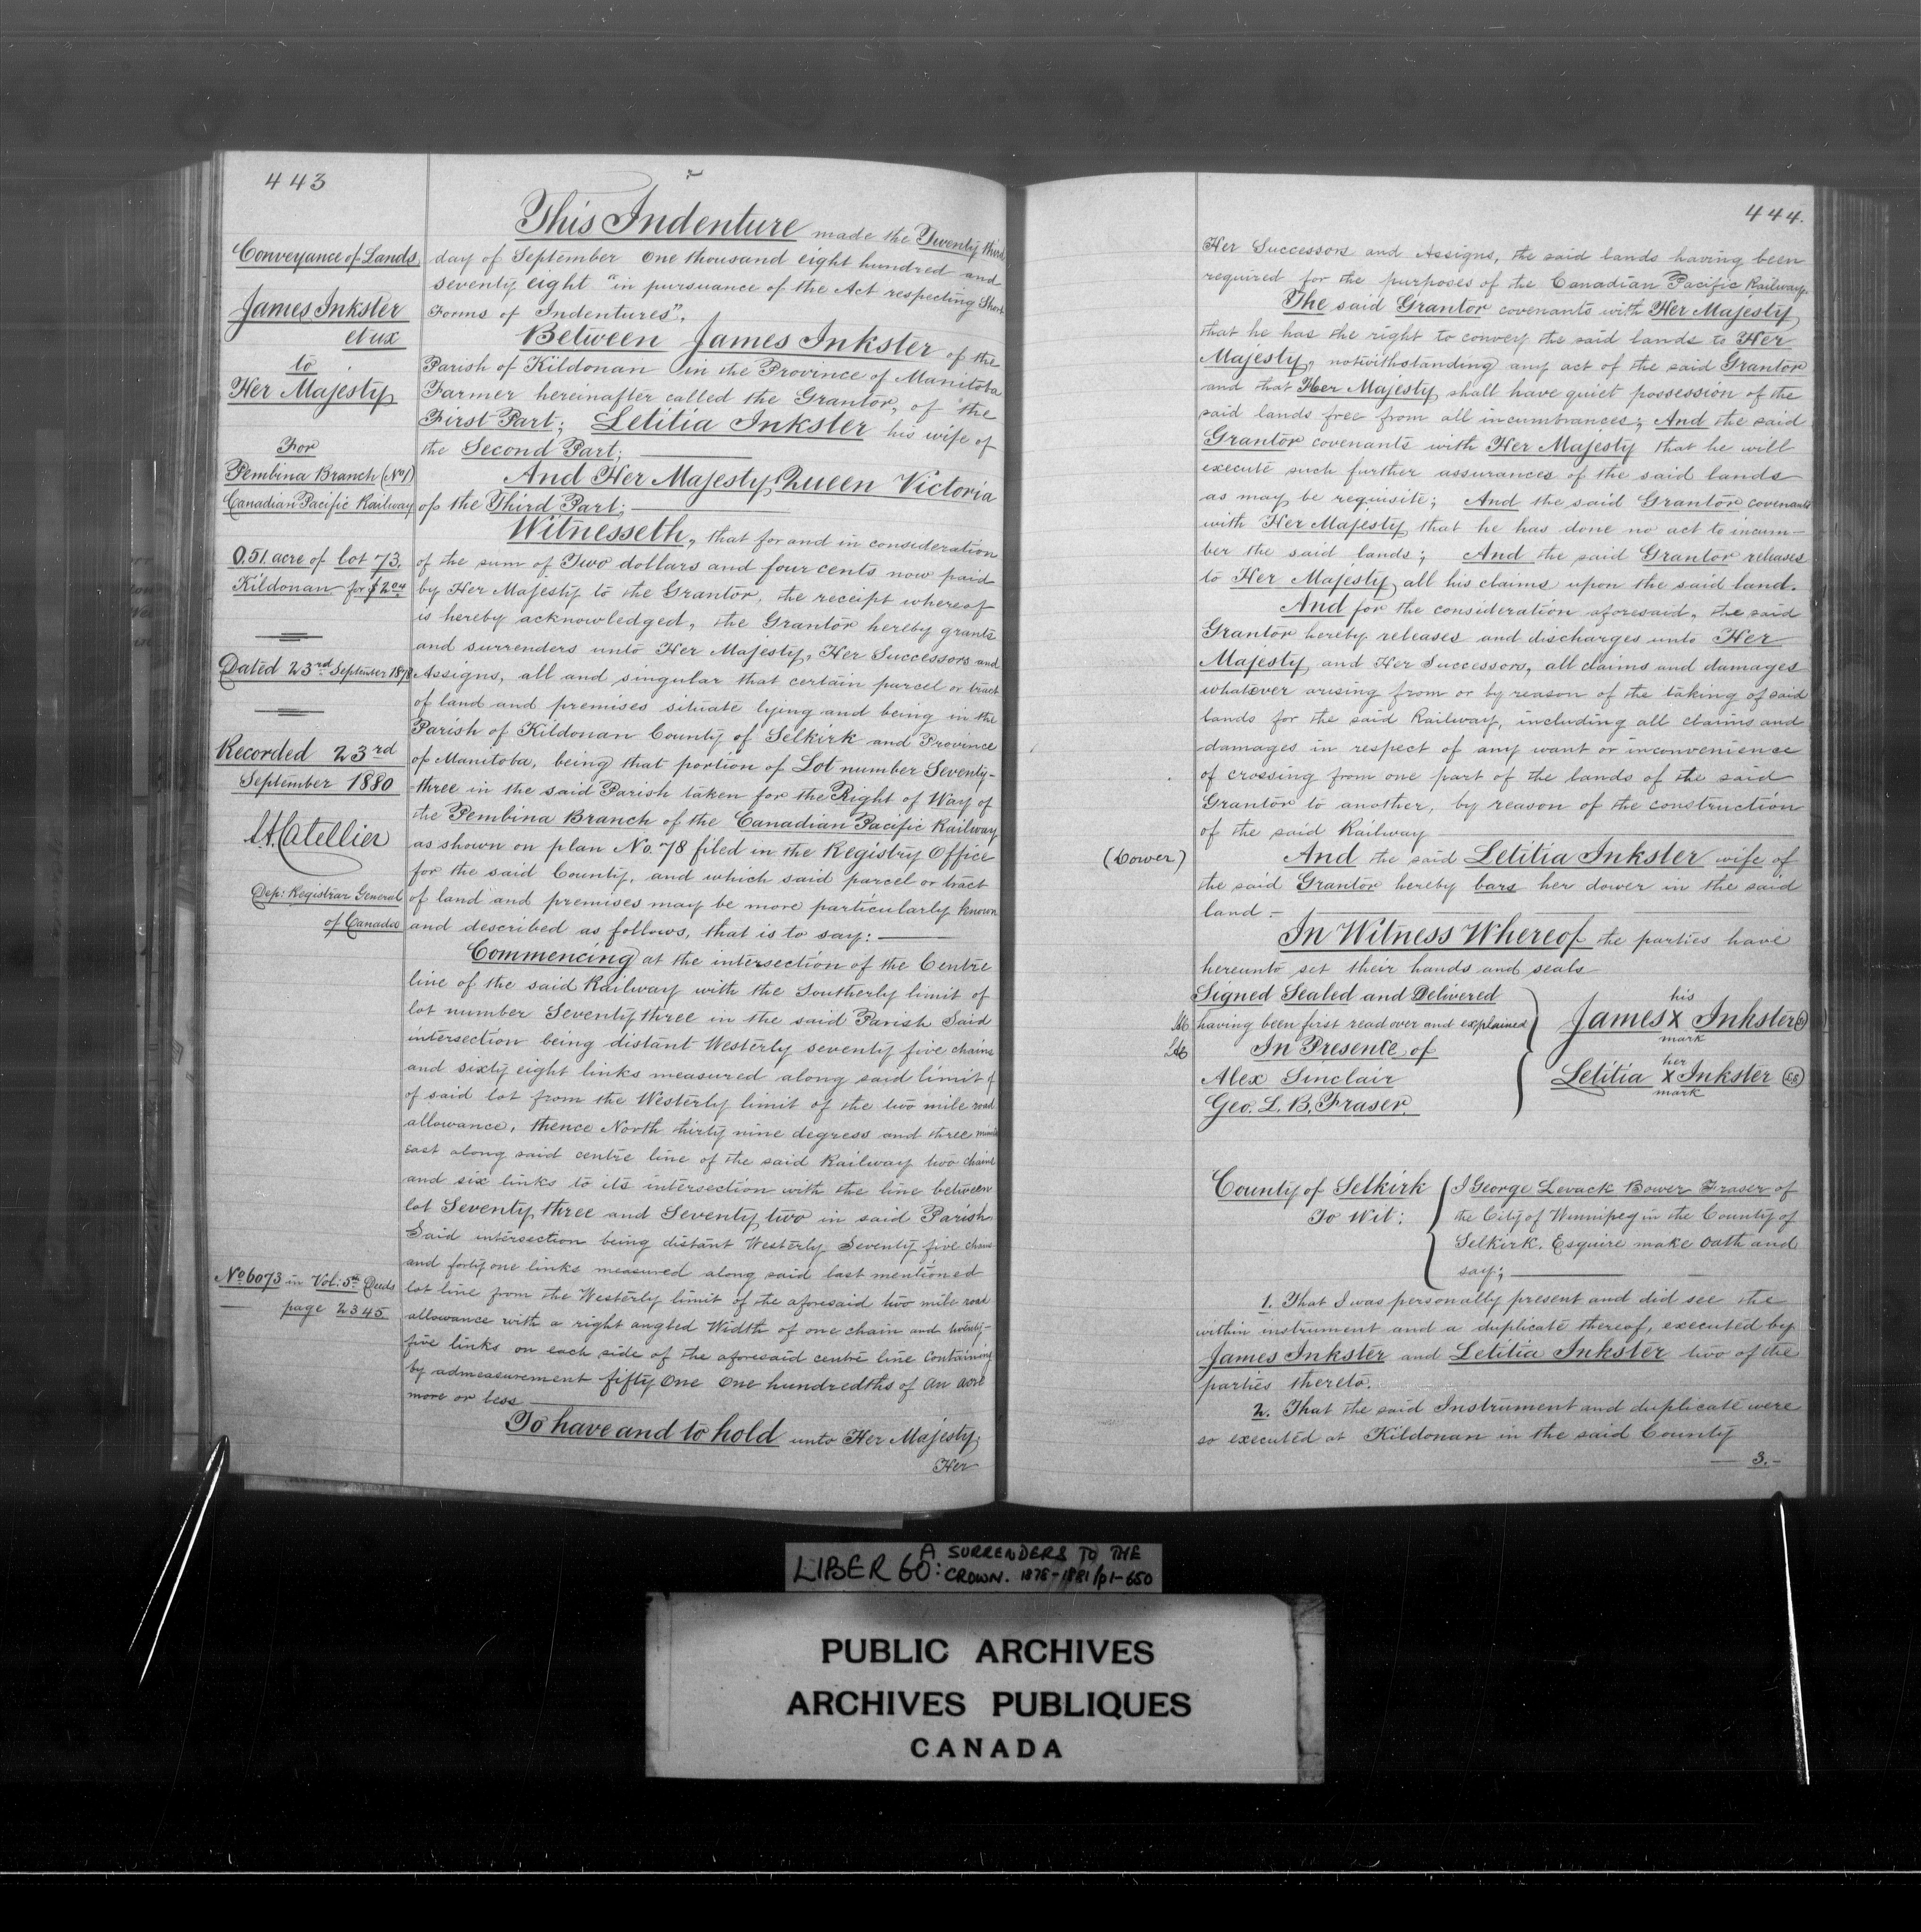 443
Conveyance of Lands
James Inkster
et ux
to
Her Majesty
For
Pembina Branch (No 1)
Canadian Pacific Railway
0.51. acre of lot 73.
Kildonan for $2.04
Dated 23rd September 1878
Recorded 23rd
September 1880
Dep: Registrar General
of Canada
No 6073 in Vol: 5th Deeds
page 2345
This Indenture made the Twenty third
day of September One thousand eight hundred and
seventy eight "in pursuance of the Act respecting Short
Forms of Indentures".
Between James Inkster of the
Parish of Kildonan in the Province of Manitoba
Farmer hereinafter called the Grantor, of the
First Part; Letitia Inkster his wife of
the Second Part;
And Her Majesty Queen Victoria
of the Third Part;
Witnesseth, that for and in consideration
of the sum of Two dollars and four cents now paid
by Her Majesty to the Grantor, the receipt whereof
is hereby acknowledged, the Grantor hereby grants
and surrenders unto Her Majesty, Her Successors and
Assigns, all and singular that certain parcel or tract
of land and premises situate lying and being in the
Parish of Kildonan County of Selkirk and Province
of Manitoba, being that portion of Lot number Seventy-
three in the said Parish taken for the Right of Way of
the Pembina Branch of the Canadian Pacific Railway
as shown on plan No. 78 filed in the Registry Office
for the said County, and which said parcel or tract
of land and premises may be more particularly known
and described as follows, that is to say:
Commencing at the intersection of the Centre
line of the said Railway with the Southerly limit of
lot number Seventy three in the said Parish Said
intersection being distant Westerly seventy five chains
and sixty eight links measured along said limit of
of said lot from the Westerly limit of the two mile road
allowance, thence North thirty nine degress and three minutes
east along said centre line of the said Railway two chains
and six links to its intersection with the line between
lot Seventy three and Seventy two in said Parish
Said intersection being distant Westerly Seventy five chains
and forty one links measured along said last mentioned
lot line from the Westerly limit of the aforesaid two mile road
allowance with a right angled Width of one chain and twenty-
five links on each side of the aforesaid centre line Containing
by admeasurement fifty One One hundredths of an acre
more or less
To have and to hold unto Her Majesty,
Her
444.
Her Successors and Assigns, the said lands having been
required for the purposes of the Canadian Pacific Railway.
The said Grantor covenants with Her Majesty
that he has the right to convey the said lands to Her
Majesty, notwithstanding any act of the said Grantor
and that Her Majesty shall have quiet possession of the
said lands free from all incumbrances; And the said
Grantor covenants with Her Majesty that he will
execute such further assurances of the said lands
as may be requisite; And the said Grantor covenants
with Her Majesty that he has done no act to incum-
ber the said lands; And the said Grantor releases
to Her Majesty all his claims upon the said land.
And for the consideration aforesaid, the said
Grantor hereby releases and discharges unto Her
Majesty and Her Successors, all claims and damages
whatever arising from or by reason of the taking of said
lands for the said Railway, including all claims and
damages in respect of any want or inconvenience
of crossing from one part of the lands of the said
Grantor to another, by reason of the construction
of the said Railway
(Dower)
And the said Letitia Inkster wife of
the said Grantor hereby bars her dower in the said
land.
In Witness Whereof the parties have
hereunto set their hands and seals
Signed Sealed and Delivered
having been first read over and explained
In Presence of
Alex Sinclair
Geo. L. B. Fraser.
his
James X Inkster
mark
her
Letitia X Inkster
mark
County of Selkirk
To Wit:
I George Levack Bower Fraser of
the City of Winnipeg in the County of
Selkirk. Esquire make Oath and
say;
1. That I was personally present and did see the
within instrument and a duplicate thereof, executed by
James Inkster and Letitia Inkster two of the
parties thereto.
2. That the said Instrument and duplicate were
so executed at Kildonan in the said County
3.
LIBER 60: A SURRENDERS TO THE
CROWN. 1878-1881/p1-650
PUBLIC ARCHIVES
ARCHIVES PUBLIQUES
CANADA